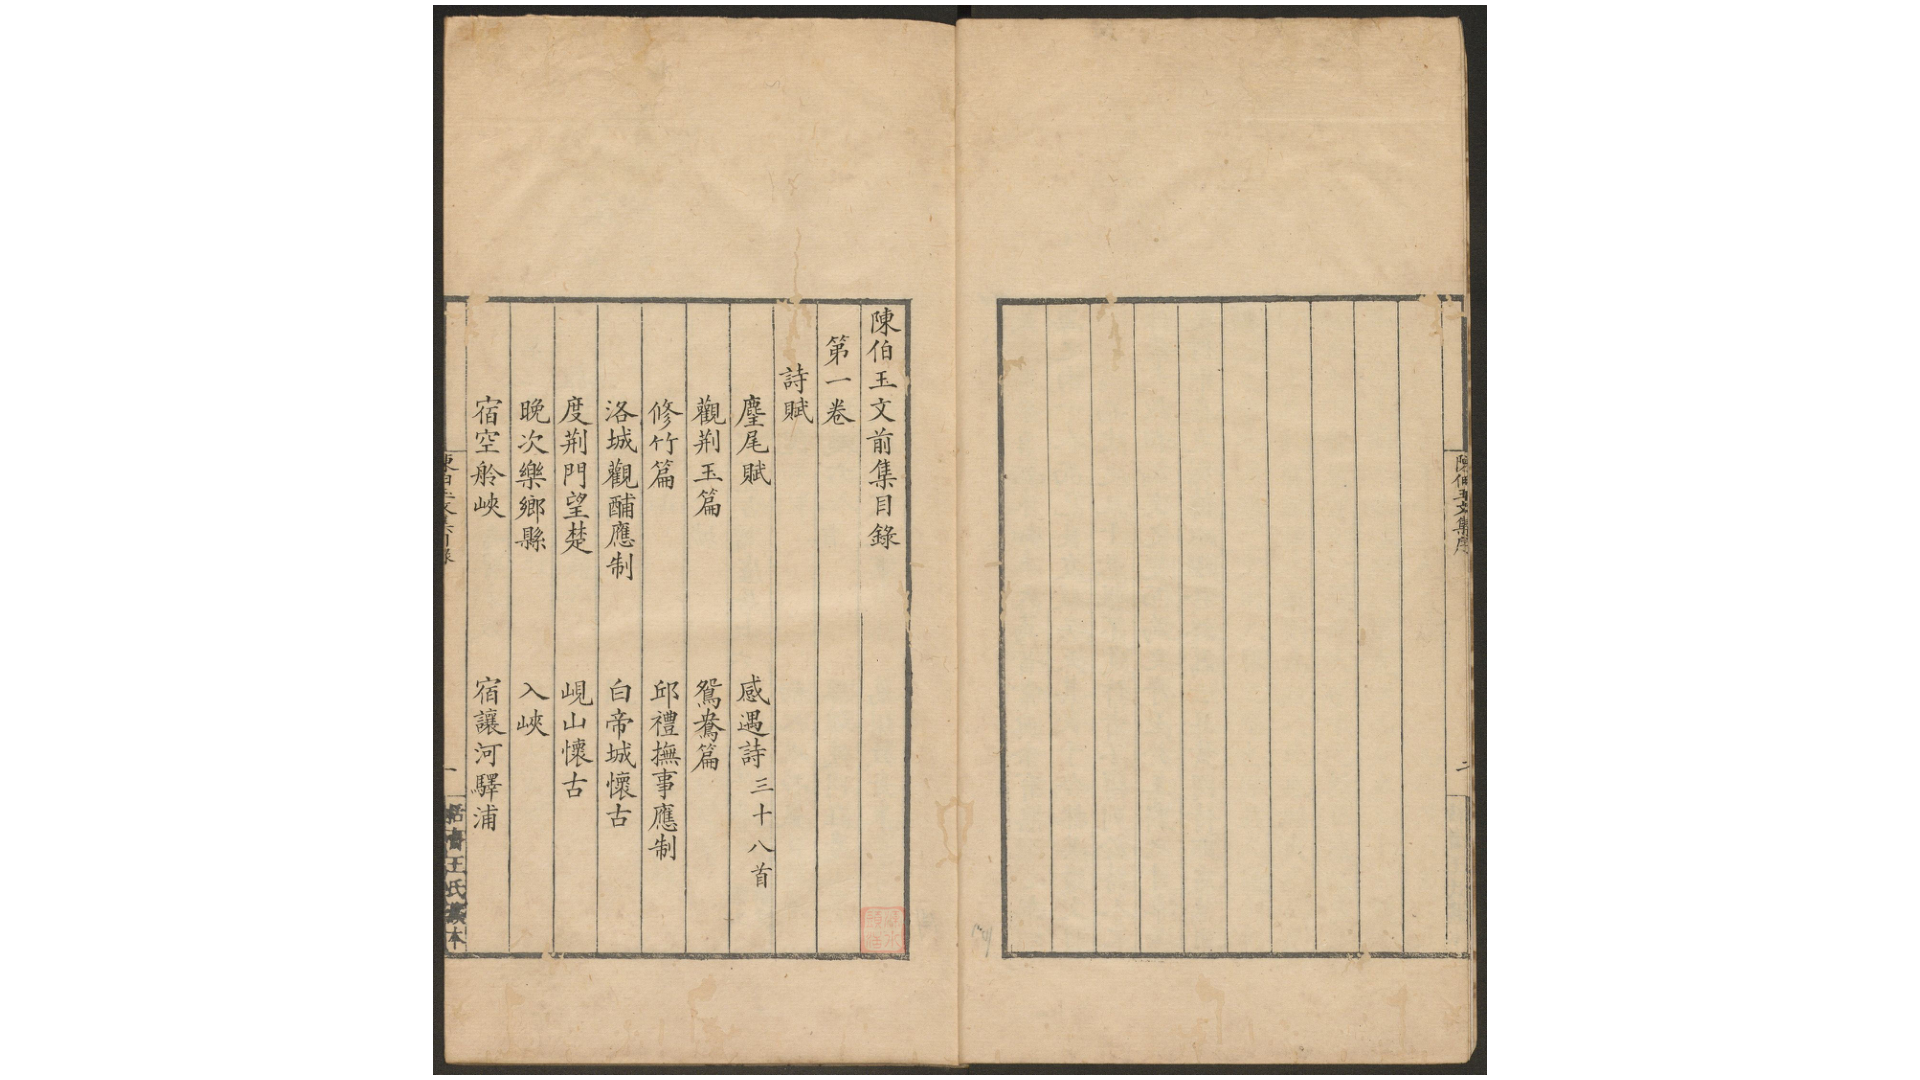 陳伯玉文集序
二
陳伯玉文前集目錄
第一卷
詩賦
麈尾賦 感遇詩三十八首
觀荆玉篇 鴛鴦篇
修竹篇 邱禮撫事應制
洛城觀酺應制 白帝城懷古
度荆門望楚 峴山懷古
晚次樂鄉縣 入峽
宿空舲峽 宿讓河驛浦
一
王氏 本